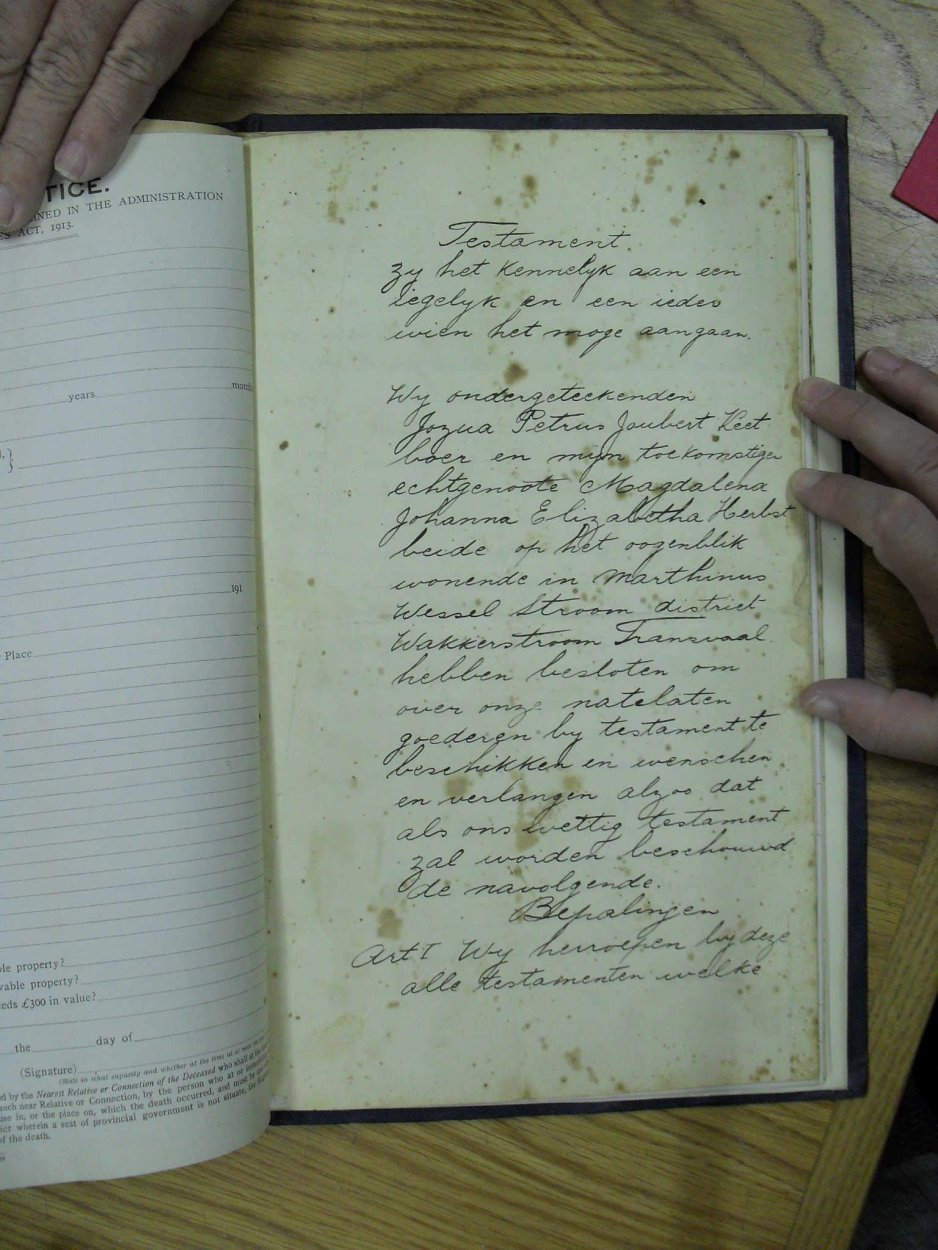 TICE.
INED IN THE ADMINISTRATION
ES ACT, 1913.
years
month
191
Place
le property?
vable property?
eeds £300 in value?
the day of
(Signature)
(State in what capacity and whether at the time at or
ed by the Nearest Relative or Connection of the Deceased who shall at the
such near Relative or Connection, by the person who at or immediately
se in, or the place on, which the death occurred, and must be
ict wherein a seat of provincial government is not situate, the
of the death.
Testament.
Zy het kennelyk aan een
iegelyk en een ieder
wien het moge aangaan.
Wy ondergeteekenden
Jozua Petrus Joubert Keet
boer en myn toekomstige
echtgenoote Magdalena
Johanna Elizabetha Herbst
beide op het oogenblik
wonende in Marthinus
Wessel Stroom district
Wakkerstroom Transvaal
hebben besloten om
over onze natelaten
goederen by testament te
beschikken en wenschen
en verlangen alzoo dat
als ons wettig testament
zal worden beschouwd
de navolgende.
Bepalingen
Art I Wy herroepen by deze
alle testamenten welke